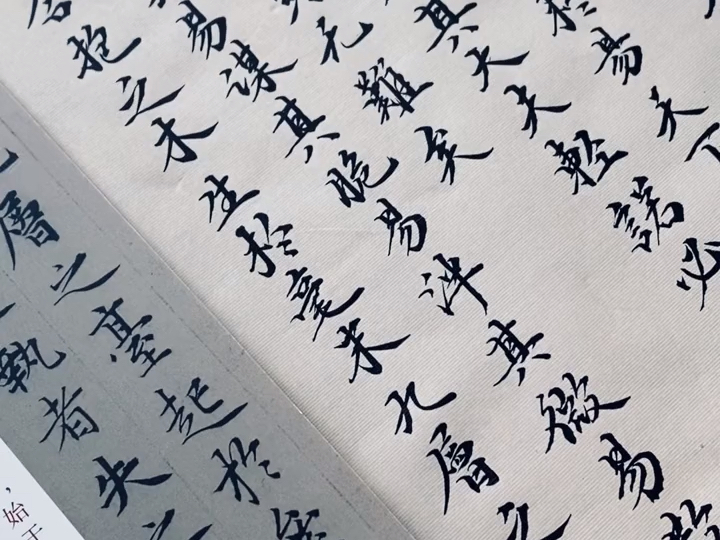 於易天下
其大夫輕諾必
无難矣
易謀其脆易泮其微易散
合抱之木生於毫末九層之
九層之臺起於
執者失之
，始于